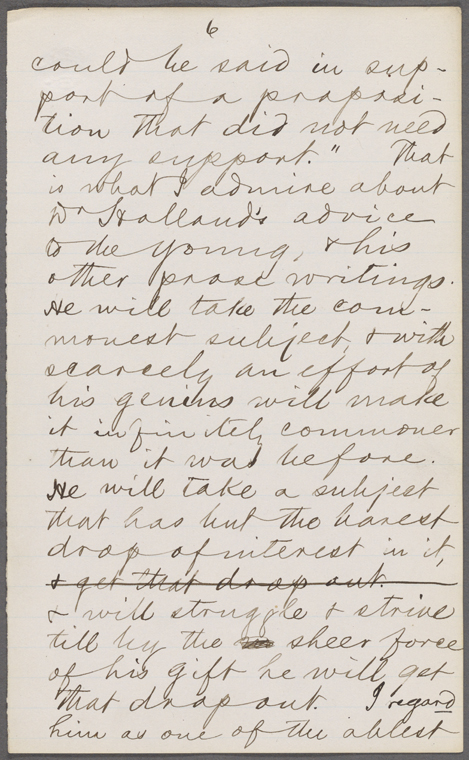 6
could be said in sup-
port of a proposi-
tion that did not need
any support." That
is what I admire about
Dr Holland's advice
to the young, & his
other prose writings.
He will take the com-
monest subject, & with
scarcely an effort of
his genius will make
it infinitely commoner
than it was before.
He will take a subject
that has but the barest
drop of interest in it,
& get that drop out.
& will struggle & strive
till by the sheer force
of his gift he will get
that drop out. I regard
him as one of the ablest